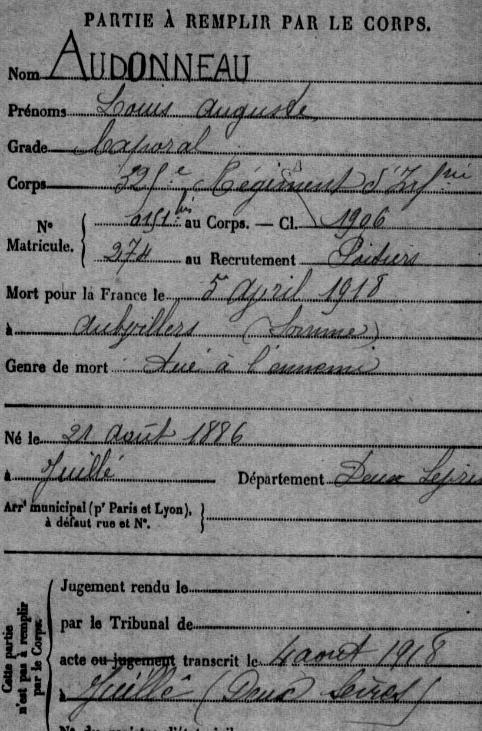 PARTIE À REMPLIR PAR LE CORPS.
Nom AUDONNEAU
Prénoms Louis Auguste
Grade Caporal
Corps 325e Régiment d'Infrie
No Matricule. { 0151 bis au Corps. — Cl. 1906
274 au Recrutement Poitiers
Mort pour la France le 5 April 1918
à Aubvillers (Somme)
Genre de mort tué à l'ennemi
Né le 21 août 1886
à Juillé Département Deux Sèvres
Arrt municipal (pr Paris et Lyon), à défaut rue et No. }
Cette partie n'est pas à remplir par le Corps.
Jugement rendu le
par le Tribunal de
acte ou jugement transcrit le 4 aout 1918
à Juillé (Deux Sèvres)